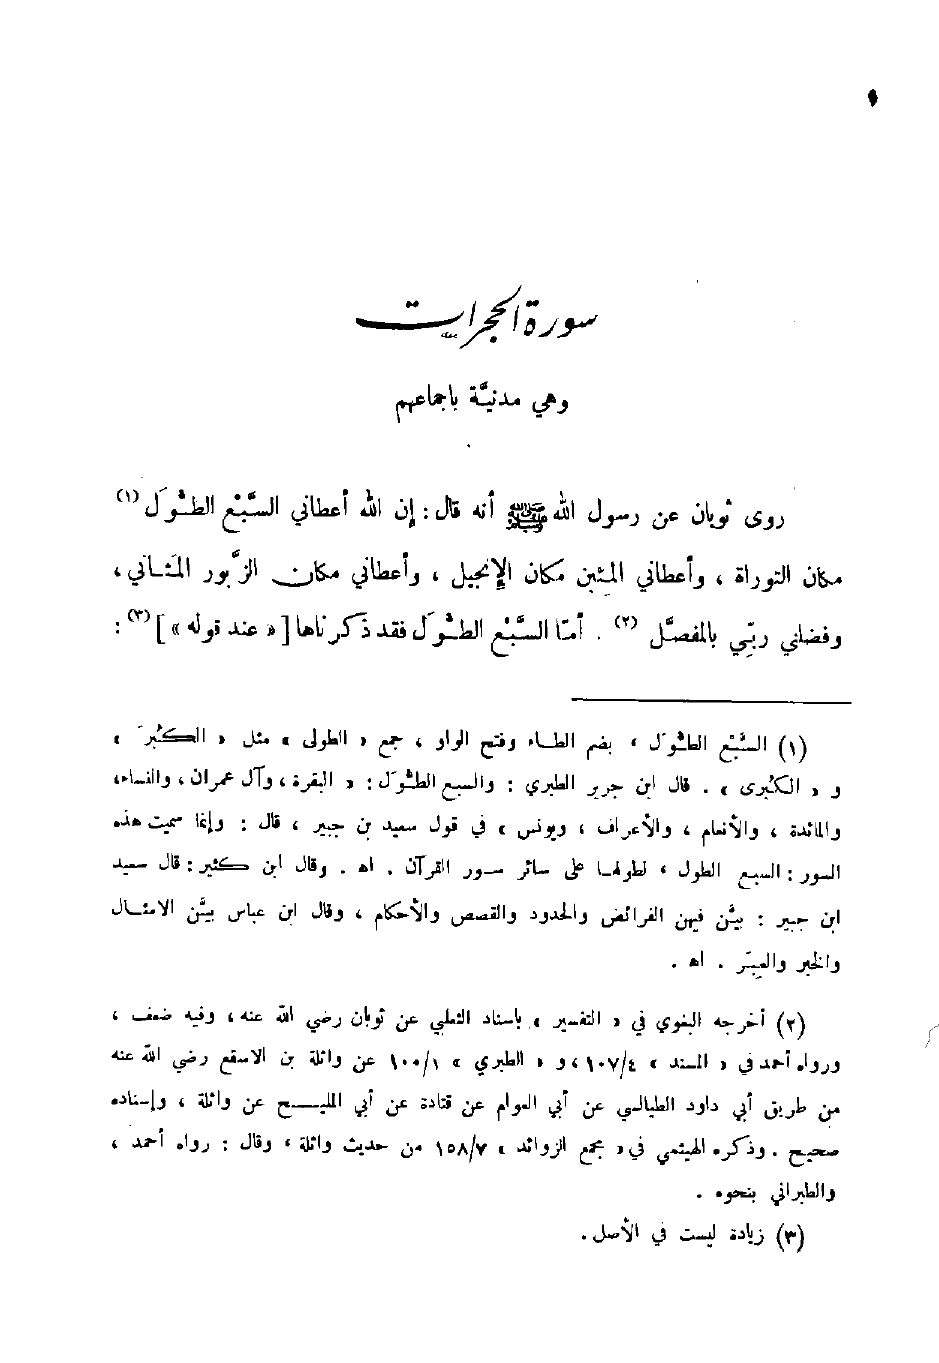 سورة الحجرات
وهي مدنيَّة بإجماعهم
روى ثوبان عن رسول الله ﷺ أنه قال : إن الله أعطاني السَّبْع الطُّوَل (١)
مكان التوراة ، وأعطاني المئين مكان الإنجيل ، وأعطاني مكان الزَّبور المَثاني ،
وفضلني ربّي بالمفصَّل (٢) . أمّا السَّبْع الطُّوَل فقد ذكرناها [ « عند قوله » ] (٣) :
(١) السَّبْع الطُّوَل ، بضم الطاء وفتح الواو ، جمع « الطولى » مثل « الكُبَر »
و « الكُبْرى » . قال ابن جرير الطبري : والسبع الطُّوَل : « البقرة ، وآل عمران ، والنساء،
والمائدة ، والأنعام ، والأعراف ، ويونس » في قول سعيد بن جبير ، قال : وإنما سميت هذه
السور : السبع الطول ، لطولها على سائر سور القرآن . اه . وقال ابن كثير : قال سعيد
ابن جبير : بيَّن فيهن الفرائض والحدود والقصص والأحكام ، وقال ابن عباس بيَّن الامثال
والخبر والعِبَر . اه .
(٢) أخرجه البغوي في « التفسير » باسناد الثعلبي عن ثوبان رضي الله عنه ، وفيه ضعف ،
ورواه أحمد في « المسند » ١٠٧/٤ ، و « الطبري » ١٠٠/١ عن واثلة بن الاسقع رضي الله عنه
من طريق أبي داود الطيالسي عن أبي العوام عن قتادة عن أبي المليح عن واثلة ، وإسناده
صحيح . وذكره الهيثمي في « مجمع الزوائد » ١٥٨/٧ من حديث واثلة ، وقال : رواه أحمد ،
والطبراني بنحوه .
(٣) زيادة ليست في الأصل .